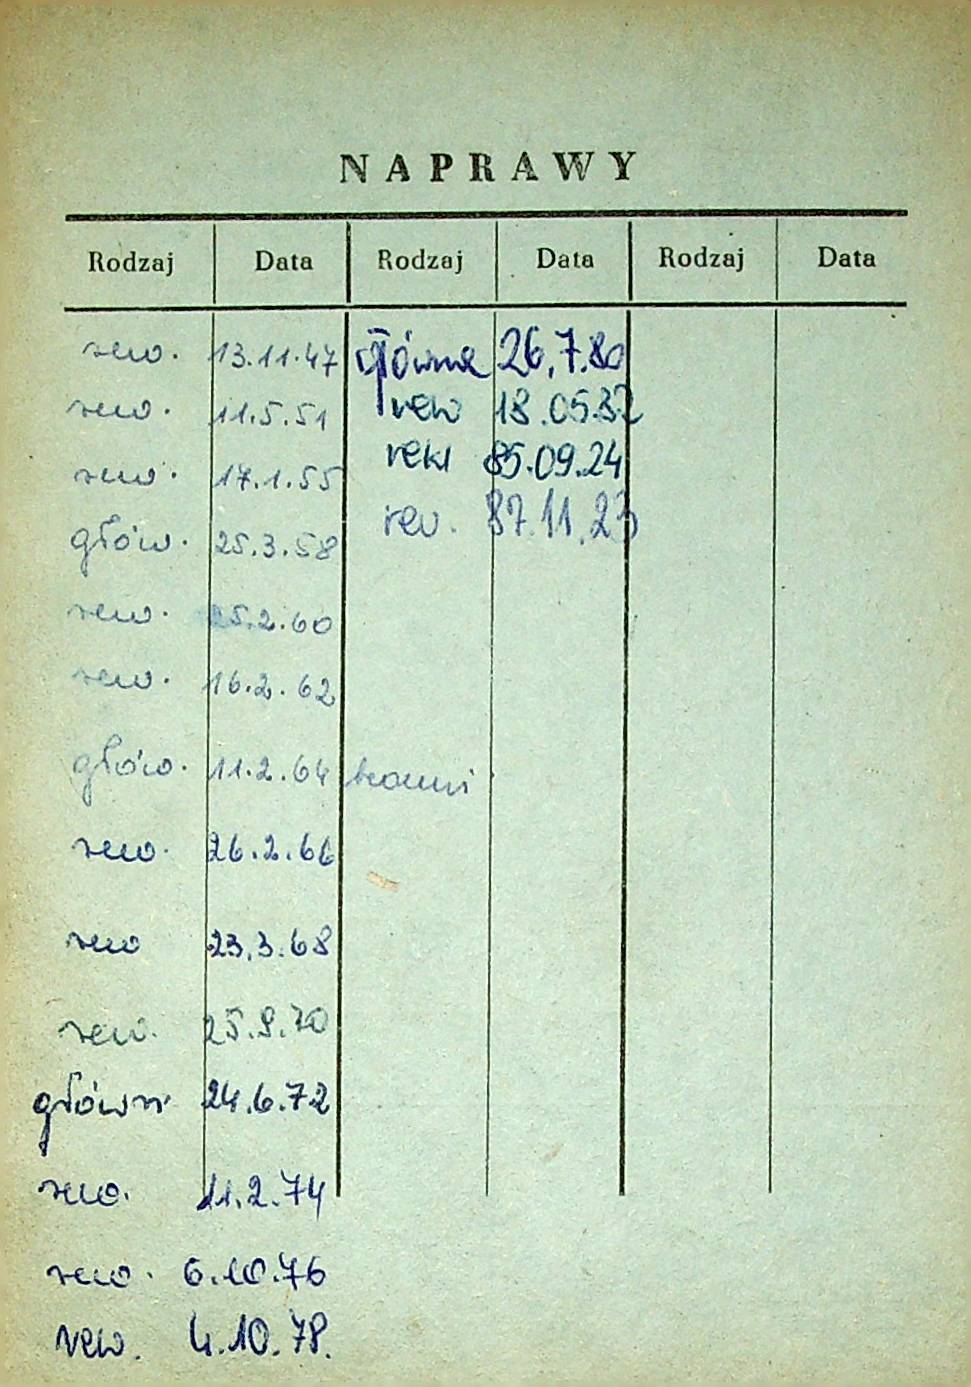 NAPRAWY
Rodzaj Data Rodzaj Data Rodzaj Data
rew. 13.11.47 główna 26.7.80
rew. 11.5.51 rew 18.05.82
rew. 17.1.55 85.09.24
głów. 25.3.58 rew. 87.11.23
rew. 25.2.60
rew. 16.2.62
głów. 11.2.64
rew. 26.2.66
rew 23.3.68
rew. 25.9.70
główn 24.6.72
rew. 11.2.74
rew. 6.10.76
rew. 4.10.78.